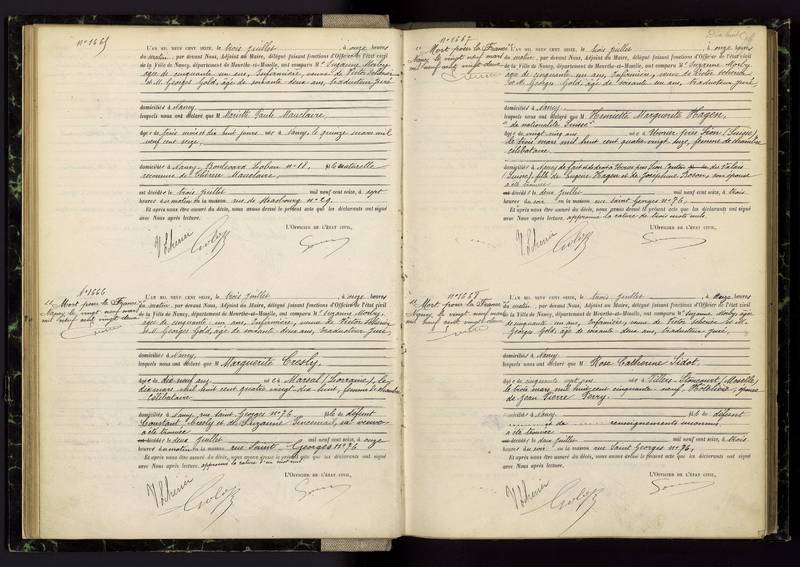 N° 1665
L'AN MIL NEUF CENT SEIZE, le trois juillet, à onze heures
du matin, par devant Nous, Adjoint au Maire, délégué faisant fonctions d'Officier de l'état civil
de la Ville de Nancy, département de Meurthe-et-Moselle, ont comparu Me Suzanne
âgée de cinquante un ans, Infirmière, veuve de Victor
et M. Georges Gold, âgé de soixante deux ans, traducteur juré,
domiciliés à Nancy
lesquels nous ont déclaré que M Mariette Paule Mauclaire,
âgée de trois mois et dix huit jours née à Nancy, le quinze mars mil
neuf cent seize.
domiciliée à Nancy, Boulevard Lobau n° 18, fille naturelle
reconnue de Thérèse Mauclaire,
est décédée le trois juillet mil neuf cent seize, à sept
heures du matin en la maison, rue de Strasbourg n° 29.
Et après nous être assuré du décès, nous avons dressé le présent acte que les déclarants ont signé
avec Nous après lecture.
L'OFFICIER DE L'ÉTAT CIVIL,
N° 1666
"Mort pour la France"
Nancy le vingt neuf mars
mil neuf cent vingt deux
L'AN MIL NEUF CENT SEIZE, le trois juillet, à onze heures
du matin, par devant Nous, Adjoint au Maire, délégué faisant fonctions d'Officier de l'état civil
de la Ville de Nancy, département de Meurthe-et-Moselle, ont comparu Me Suzanne
âgée de cinquante un ans, Infirmière, veuve de Victor
et M. Georges Gold, âgé de soixante deux ans, traducteur juré,
domiciliés à Nancy
lesquels nous ont déclaré que M Marguerite Cresly,
âgée de dix neuf ans née à Marsal (Lorraine), le
dix mars mil huit cent quatre vingt dix huit, femme de chambre
célibataire
domiciliée à Nancy, rue Saint Georges n° 76 fille de défunt
Constant Cresly et de Suzanne Vincent, sa veuve
a été trouvée
décédée le deux juillet mil neuf cent seize, à onze
heures du matin en la maison rue Saint Georges n° 76
Et après nous être assuré du décès, nous avons dressé le présent acte que les déclarants ont signé
avec Nous après lecture. approuvé la rature d'un mot nul
L'OFFICIER DE L'ÉTAT CIVIL,
N° 1667
"Mort pour la France"
Nancy, le vingt neuf mars
mil neuf cent vingt deux
L'AN MIL NEUF CENT SEIZE, le trois juillet, à onze heures
du matin, par devant Nous, Adjoint au Maire, délégué faisant fonctions d'Officier de l'état civil
de la Ville de Nancy, département de Meurthe-et-Moselle, ont comparu Me Suzanne
âgée de cinquante un ans, Infirmière, veuve de Victor
et M. Georges Gold, âgé de soixante deux ans, traducteur juré
domiciliés à Nancy
lesquels nous ont déclaré que M Henriette Marguerite Hagen,
"de nationalité Suisse"
âgée de vingt cinq ans née à près Sion (Suisse),
le trois mars mil huit cent quatre vingt onze, femme de chambre
célibataire
domiciliée à Nancy de fait et de droit à près Sion Canton du Valais
(Suisse), fille de Eugène Hagen et de Joséphine son épouse
a été trouvée
décédée le deux juillet mil neuf cent seize, à trois
heures du soir en la maison, rue Saint Georges n° 76,
Et après nous être assuré du décès, nous avons dressé le présent acte que les déclarants ont signé
avec Nous après lecture, approuvé la rature de trois mots nuls
L'OFFICIER DE L'ÉTAT CIVIL,
N° 1668
"Mort pour la France"
Nancy, le vingt neuf mars
mil neuf cent vingt deux
L'AN MIL NEUF CENT SEIZE, le trois juillet, à onze heures
du matin, par devant Nous, Adjoint au Maire, délégué faisant fonctions d'Officier de l'état civil
de la Ville de Nancy, département de Meurthe-et-Moselle, ont comparu Me Suzanne
de cinquante un ans, Infirmière, veuve de Victor et M.
Georges Gold, âgé de soixante deux ans, traducteur juré,
domiciliés à Nancy
lesquels nous ont déclaré que M Rose Catherine Sidot,
âgée de cinquante sept ans née à Villers-Stoncourt (Moselle)
le trois mars mil huit cent cinquante neuf, Hôtelière, épouse
de Jean Pierre Perry.
domiciliée à Nancy fille de défunt
et de renseignements inconnus
a été trouvée
décédée le deux juillet mil neuf cent seize, à trois
heures du soir en la maison, rue Saint Georges n° 76,
Et après nous être assuré du décès, nous avons dressé le présent acte que les déclarants ont signé
avec Nous après lecture.
L'OFFICIER DE L'ÉTAT CIVIL,